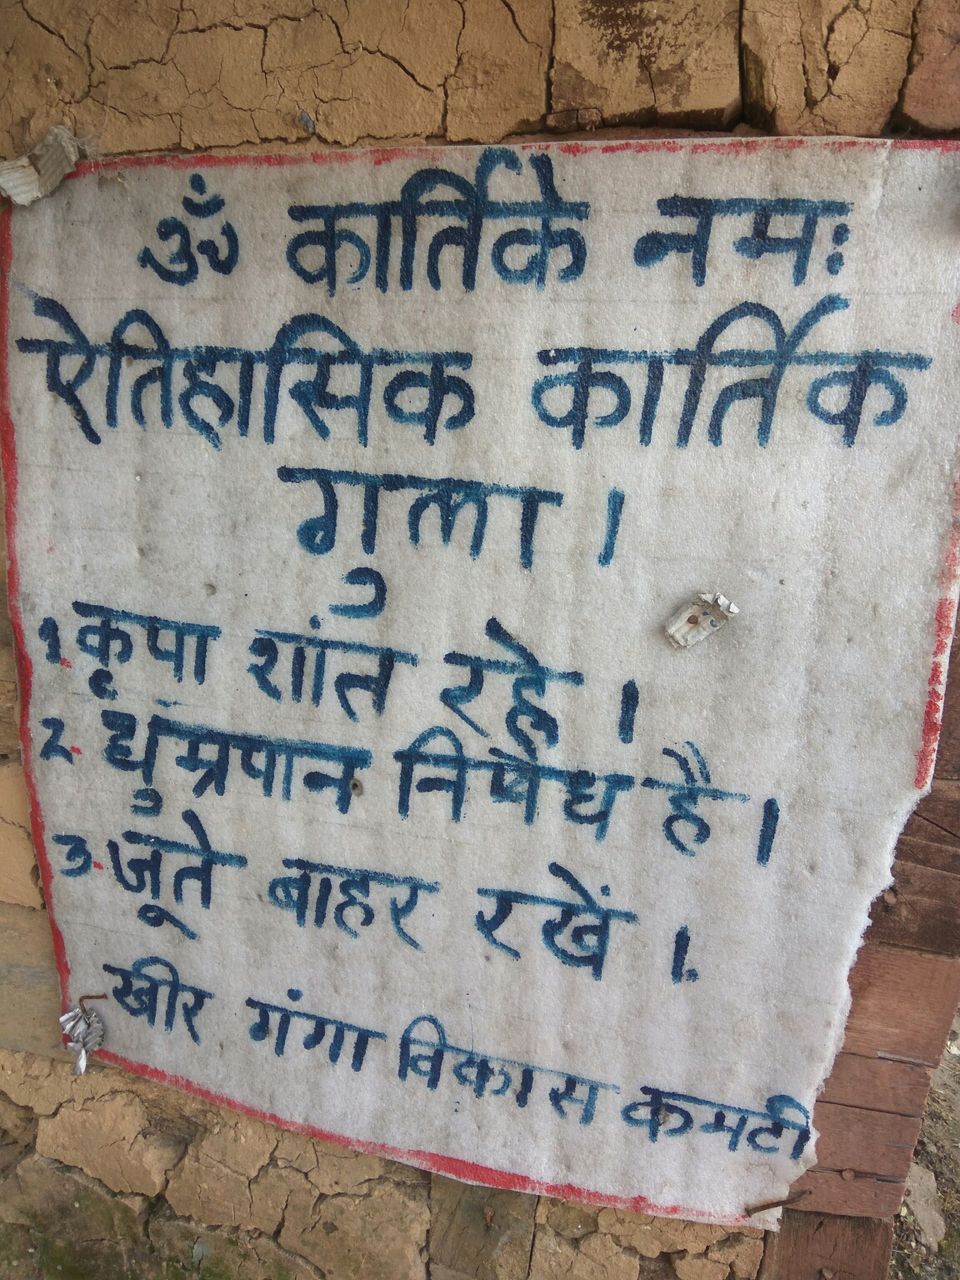 ॐ कार्तिके नमः
ऐतिहासिक कार्तिक
गुला।
1. कृपा शांत रहे।
2. धुम्रपान निषेध है।
3. जूते बाहर रखें।
खीर गंगा विकास कमटी